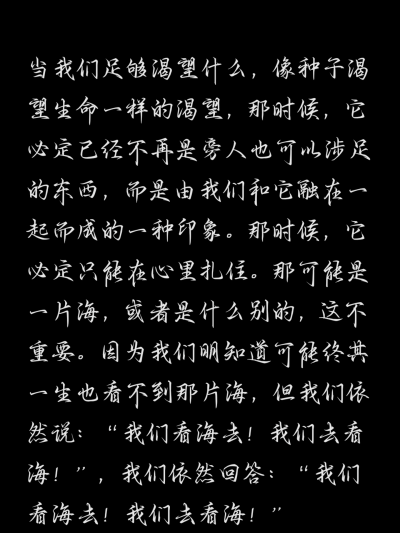 当我们足够渴望什么，像种子渴
望生命一样的渴望，那时候，它
必定已经不再是旁人也可以涉足
的东西，而是由我们和它融在一
起而成的一种印象。那时候，它
必定只能在心里扎住。那可能是
一片海，或者是什么别的，这不
重要。因为我们明知道可能终其
一生也看不到那片海，但我们依
然说：“我们看海去！我们去看
海！”，我们依然回答：“我们
看海去！我们去看海！”